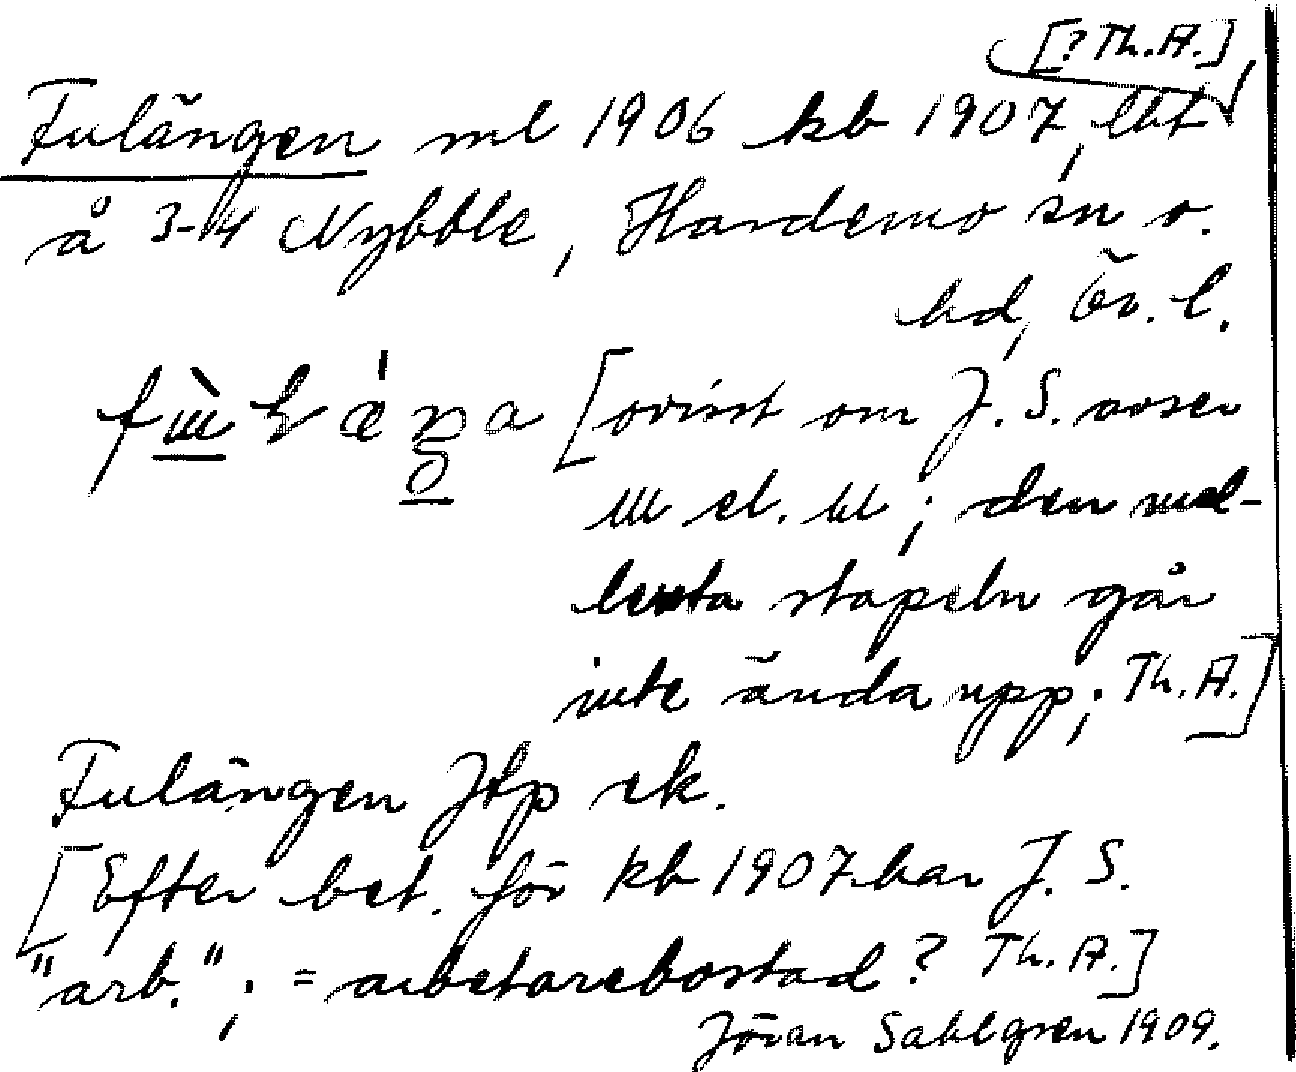 [? Th. A.]
Fulängen ml 1906 kb 1907, lht
å 3-4 Nybble, Hardemo sn o.
hd, Ör. l.
[ovisst om J. S. avser
el. ; den mel-
lersta stapeln går
inte ända upp; Th. A.]
Fulängen Jfp ek.
[Efter bet. för kb 1907 har J. S.
"arb."; = arbetarebostad? Th. A.]
Jöran Sahlgren 1909.